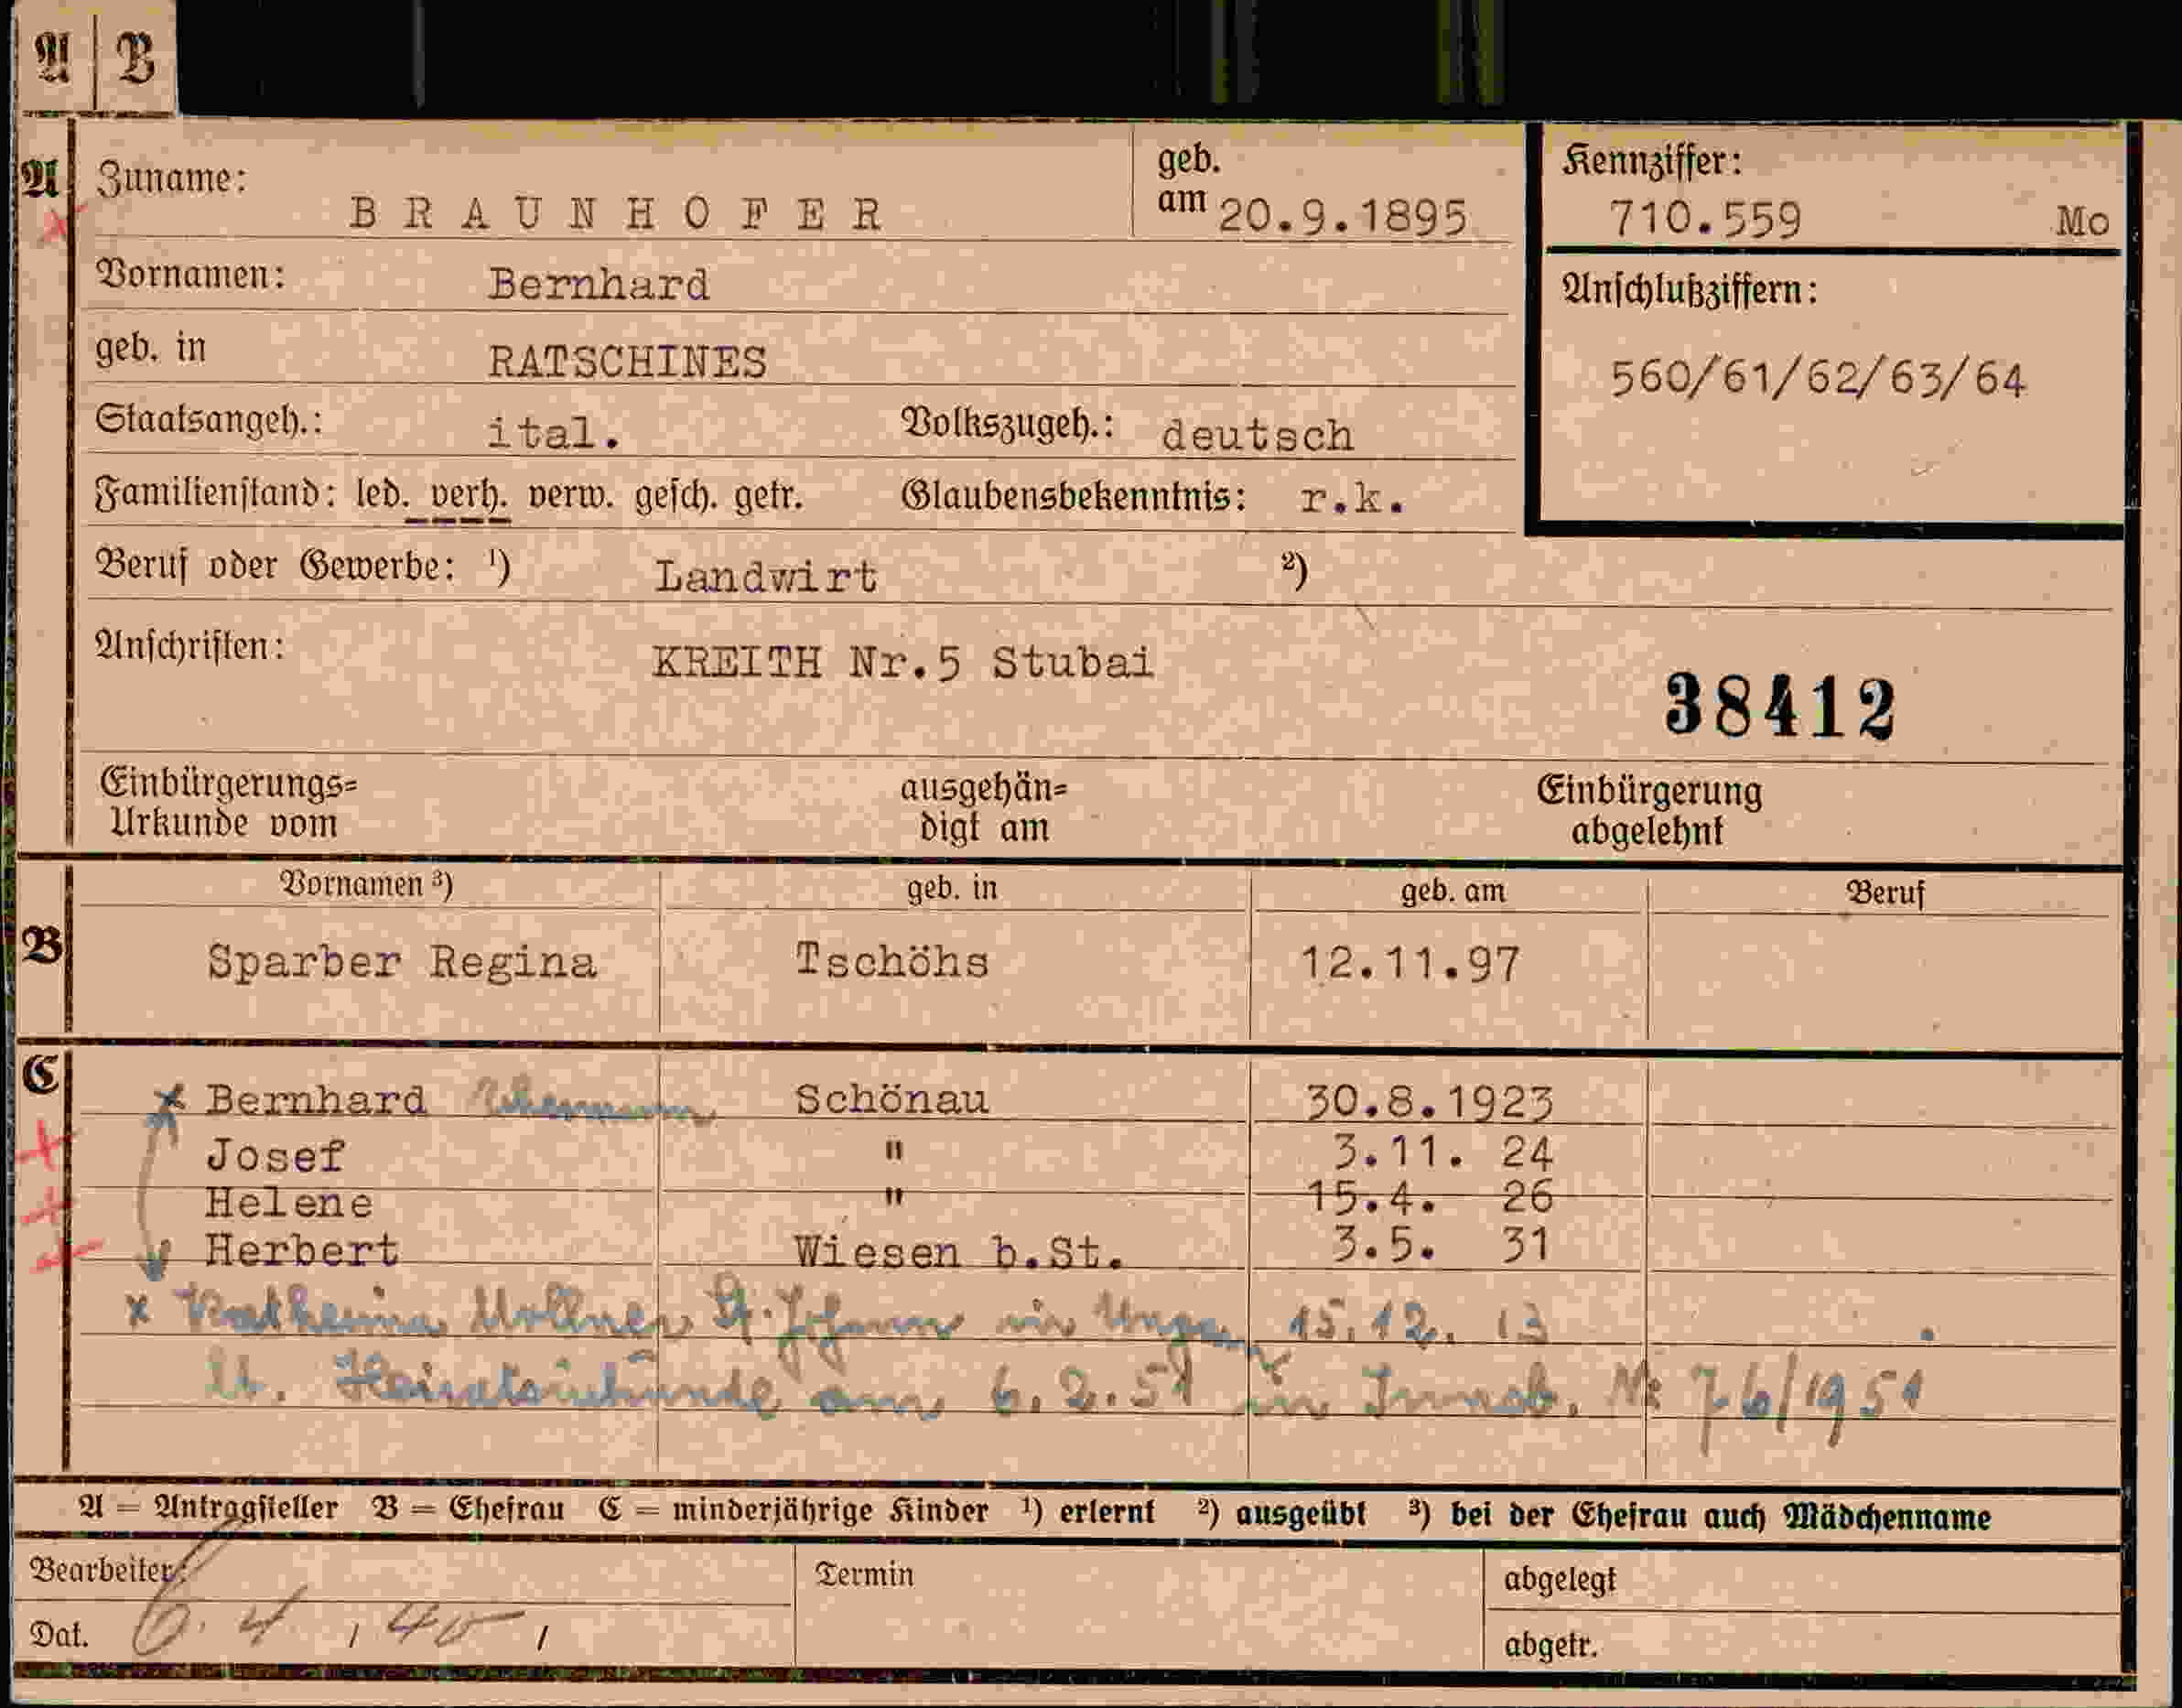 A B
A Zuname: BRAUNHOFER geb. am 20.9.1895 Kennziffer: 710.559 Mo
Vornamen: Bernhard
Anschlußziffern:
geb. in RATSCHINES
560/61/62/63/64
Staatsangeh.: ital. Volkszugeh.: deutsch
Familienstand: led. verh. verw. gesch. getr. Glaubensbekenntnis: r.k.
Beruf oder Gewerbe: ¹) Landwirt ²)
Anschriften: KREITH Nr.5 Stubai
38412
Einbürgerungs= ausgehän= Einbürgerung
Urkunde vom digt am abgelehnt
Vornamen ³) geb. in geb. am Beruf
B Sparber Regina Tschöhs 12.11.97
C
x Bernhard Schönau 30.8.1923
Josef " 3.11. 24
Helene " 15.4. 26
Herbert Wiesen b.St. 3.5. 31
x Katharina St. Johann in 15.12. 13
lt. Heiratsurkunde am 6.2.51 in Innsb. Nr 76/1951
A = Antragsteller B = Ehefrau C = minderjährige Kinder ¹) erlernt ²) ausgeübt ³) bei der Ehefrau auch Mädchenname
Bearbeiter: Termin abgelegt
Dat. 6.4.40 abgetr.